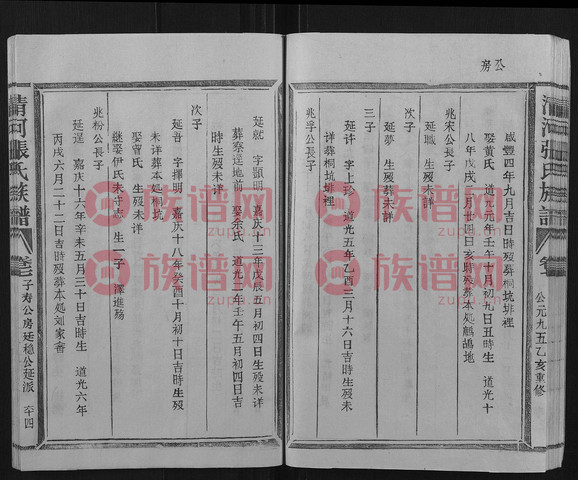 公房
清河張氏族譜
公元一九五乙亥重修
咸豐四年九月吉日時歿葬桐坑排裡
娶黃氏 道光元年壬午十月初九日丑時生 道光十
八年戊戌三月廿四日亥時歿葬本處鷓鴣地
兆宋公長子
延職 生歿未詳
次子
延夢 生歿未詳
三子
延許 字上珍 道光五年乙酉三月十六日吉時生歿未
詳葬桐坑排裡
兆孚公長子
延就 字顯明 嘉慶十三年戊辰五月初四日生歿未詳
葬寮逕地前 娶余氏 道光二年壬午五月初四日吉
時生歿未詳
次子
延吾 字擇明 嘉慶十八年癸酉十月初十日吉時生歿
未詳葬本處桐坑
娶曾氏 生歿未詳
繼娶伊氏未守志 生一子 澤進殤
兆粉公長子
延逞 嘉慶十六年辛未五月三十日吉時生 道光六年
丙戌六月二十二日吉時歿葬本處刘家會
清河張氏族譜
子寿公房廷穏公延派
六十四
族谱网
zupu.cn